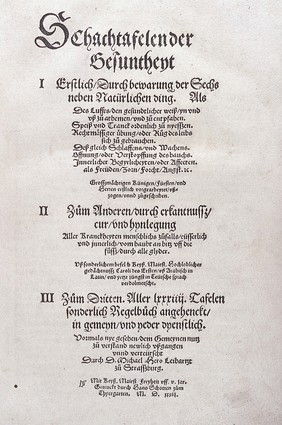 Schachtafelen der
Gesuntheyt
I Erstlich/Durch bewarung der Sechs
neben Natürlichen ding. Als
Des Luffts/den gesundtlicher weiß/yn vnd
vß zů athemen/vnd zů entpfahen.
Speiß vnd Tranck ordenlich zů nyessen.
Rechtmässiger übung/oder Růg des leibs
sich zů gebrauchen.
Deß gleich Schlaffens/vnd Wachens.
Offnung/oder Verstopffung des bauchs.
Innerlicher Begyrlicheyten/oder Affecten.
als Freüden/Zorn/Forcht/Angst.ꝛc.
Großmächtigen Künigen/Fürsten/vnd
Herren erstlich vorgearbeytet/vß-
zogen/vnnd zůgeschriben.
II Zům Anderen/durch erkantnuß/
cur/vnd hynlegung
Aller Kranckheyten menschlichs zůfalls/eüsserlich
vnd innerlich/vom haubt an biß vff die
füß/durch alle glyder.
Vß sonderlichem befel h Keyß. Maiest. Hochloblicher
gedächtnuß Caroli des Ersten/vß Arabisch in
Latin/vnd yetz jüngst in Teütsche sprach
verdolmetscht.
III Zům Dritten. Aller lxxxiiij. Tafelen
sonderlich Regelbůch angehenckt/
in gemeyn/vnd yeder dyenstlich.
Vormals nye gesehen/dem Gemeynen nutz
zů verstand newlich vßgangen
vnnd verteütscht
Durch D. Michael Hero Leibartzt
zů Straßburg.
Mit Keyß. Maiest Freyheit vff v. Jar.
Getruckt durch Hans Schotten zům
Thyergarten. M. D. xxxiij.